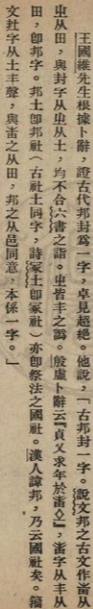 王國維先生根據卜辭，證古代邦封爲一字，卓見超絕。他說，「古邦封一字。說文邦之古文作𤰫从
㞢从田，與封字从㞢从土，均不合六書之誼。㞢皆丰之譌。殷虛卜辭云『貞𠦪求年於𤰫』，𤰫字从丰从
田，卽邦字。邦土卽邦社（古社土同字，詩冢土卽冢社）亦卽祭法之國社。漢人諱邦，乃云國社矣。籀
文社字从土丰聲，與𤰫之从田，邦之从邑同意，本係一字。」